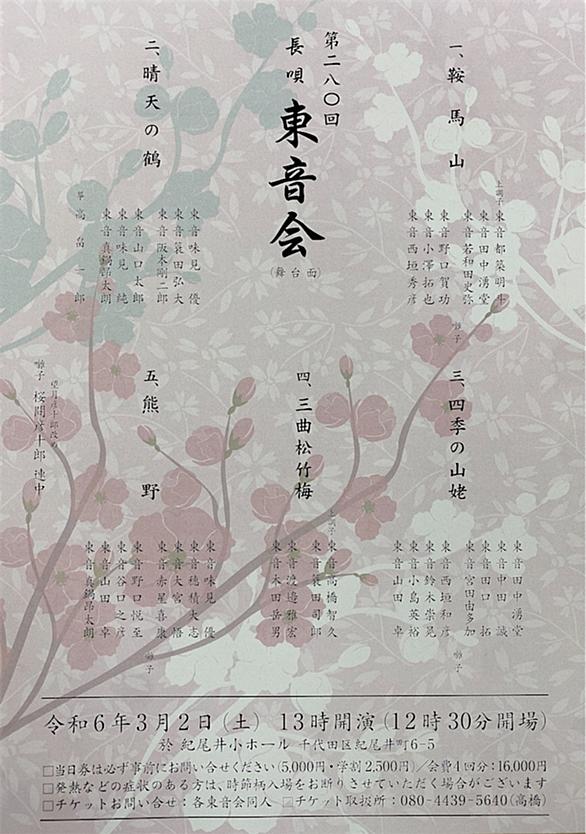 第二八〇回
長唄 東音会
(舞台面)
一、鞍馬山
上調子 東音 都築明斗
東音 田中湧堂
東音 若和田史弥
東音 野口賀功
東音 小澤拓也
東音 西垣秀彦
囃子
二、晴天の鶴
東音 味見優
東音 簑田弘大
東音 阪本剛二郎
東音 山口太郎
東音 味見純
東音 真鍋昂太朗
箏 高畠一郎
三、四季の山姥
東音 田中湧堂
東音 中田誠
東音 田口拓
東音 宮田由多加
東音 西垣和彦
東音 鈴木崇晃
東音 小島英裕
東音 山田卓
囃子
四、三曲松竹梅
上調子 東音 高橋智久
東音 簑田司郎
東音 渡邉雅宏
東音 木田岳男
五、熊野
東音 味見優
東音 穂積大志
東音 大宮悟
東音 赤星喜康
東音 野口悦至
東音 谷口之彦
東音 山田卓
東音 真鍋昂太朗
囃子
望月彦十郎改め
囃子 桜間彦十郎 連中
令和6年3月2日(土) 13時開演(12時30分開場)
於 紀尾井小ホール 千代田区紀尾井町6-5
□当日券は必ず事前にお問い合せください(5,000円・学割2,500円)/会費4回分:16,000円
□発熱などの症状のある方は、時節柄入場をお断りさせていただく場合がございます
□チケットお問い合せ:各東音会同人 □チケット取扱所:080-4439-5640(高橋)